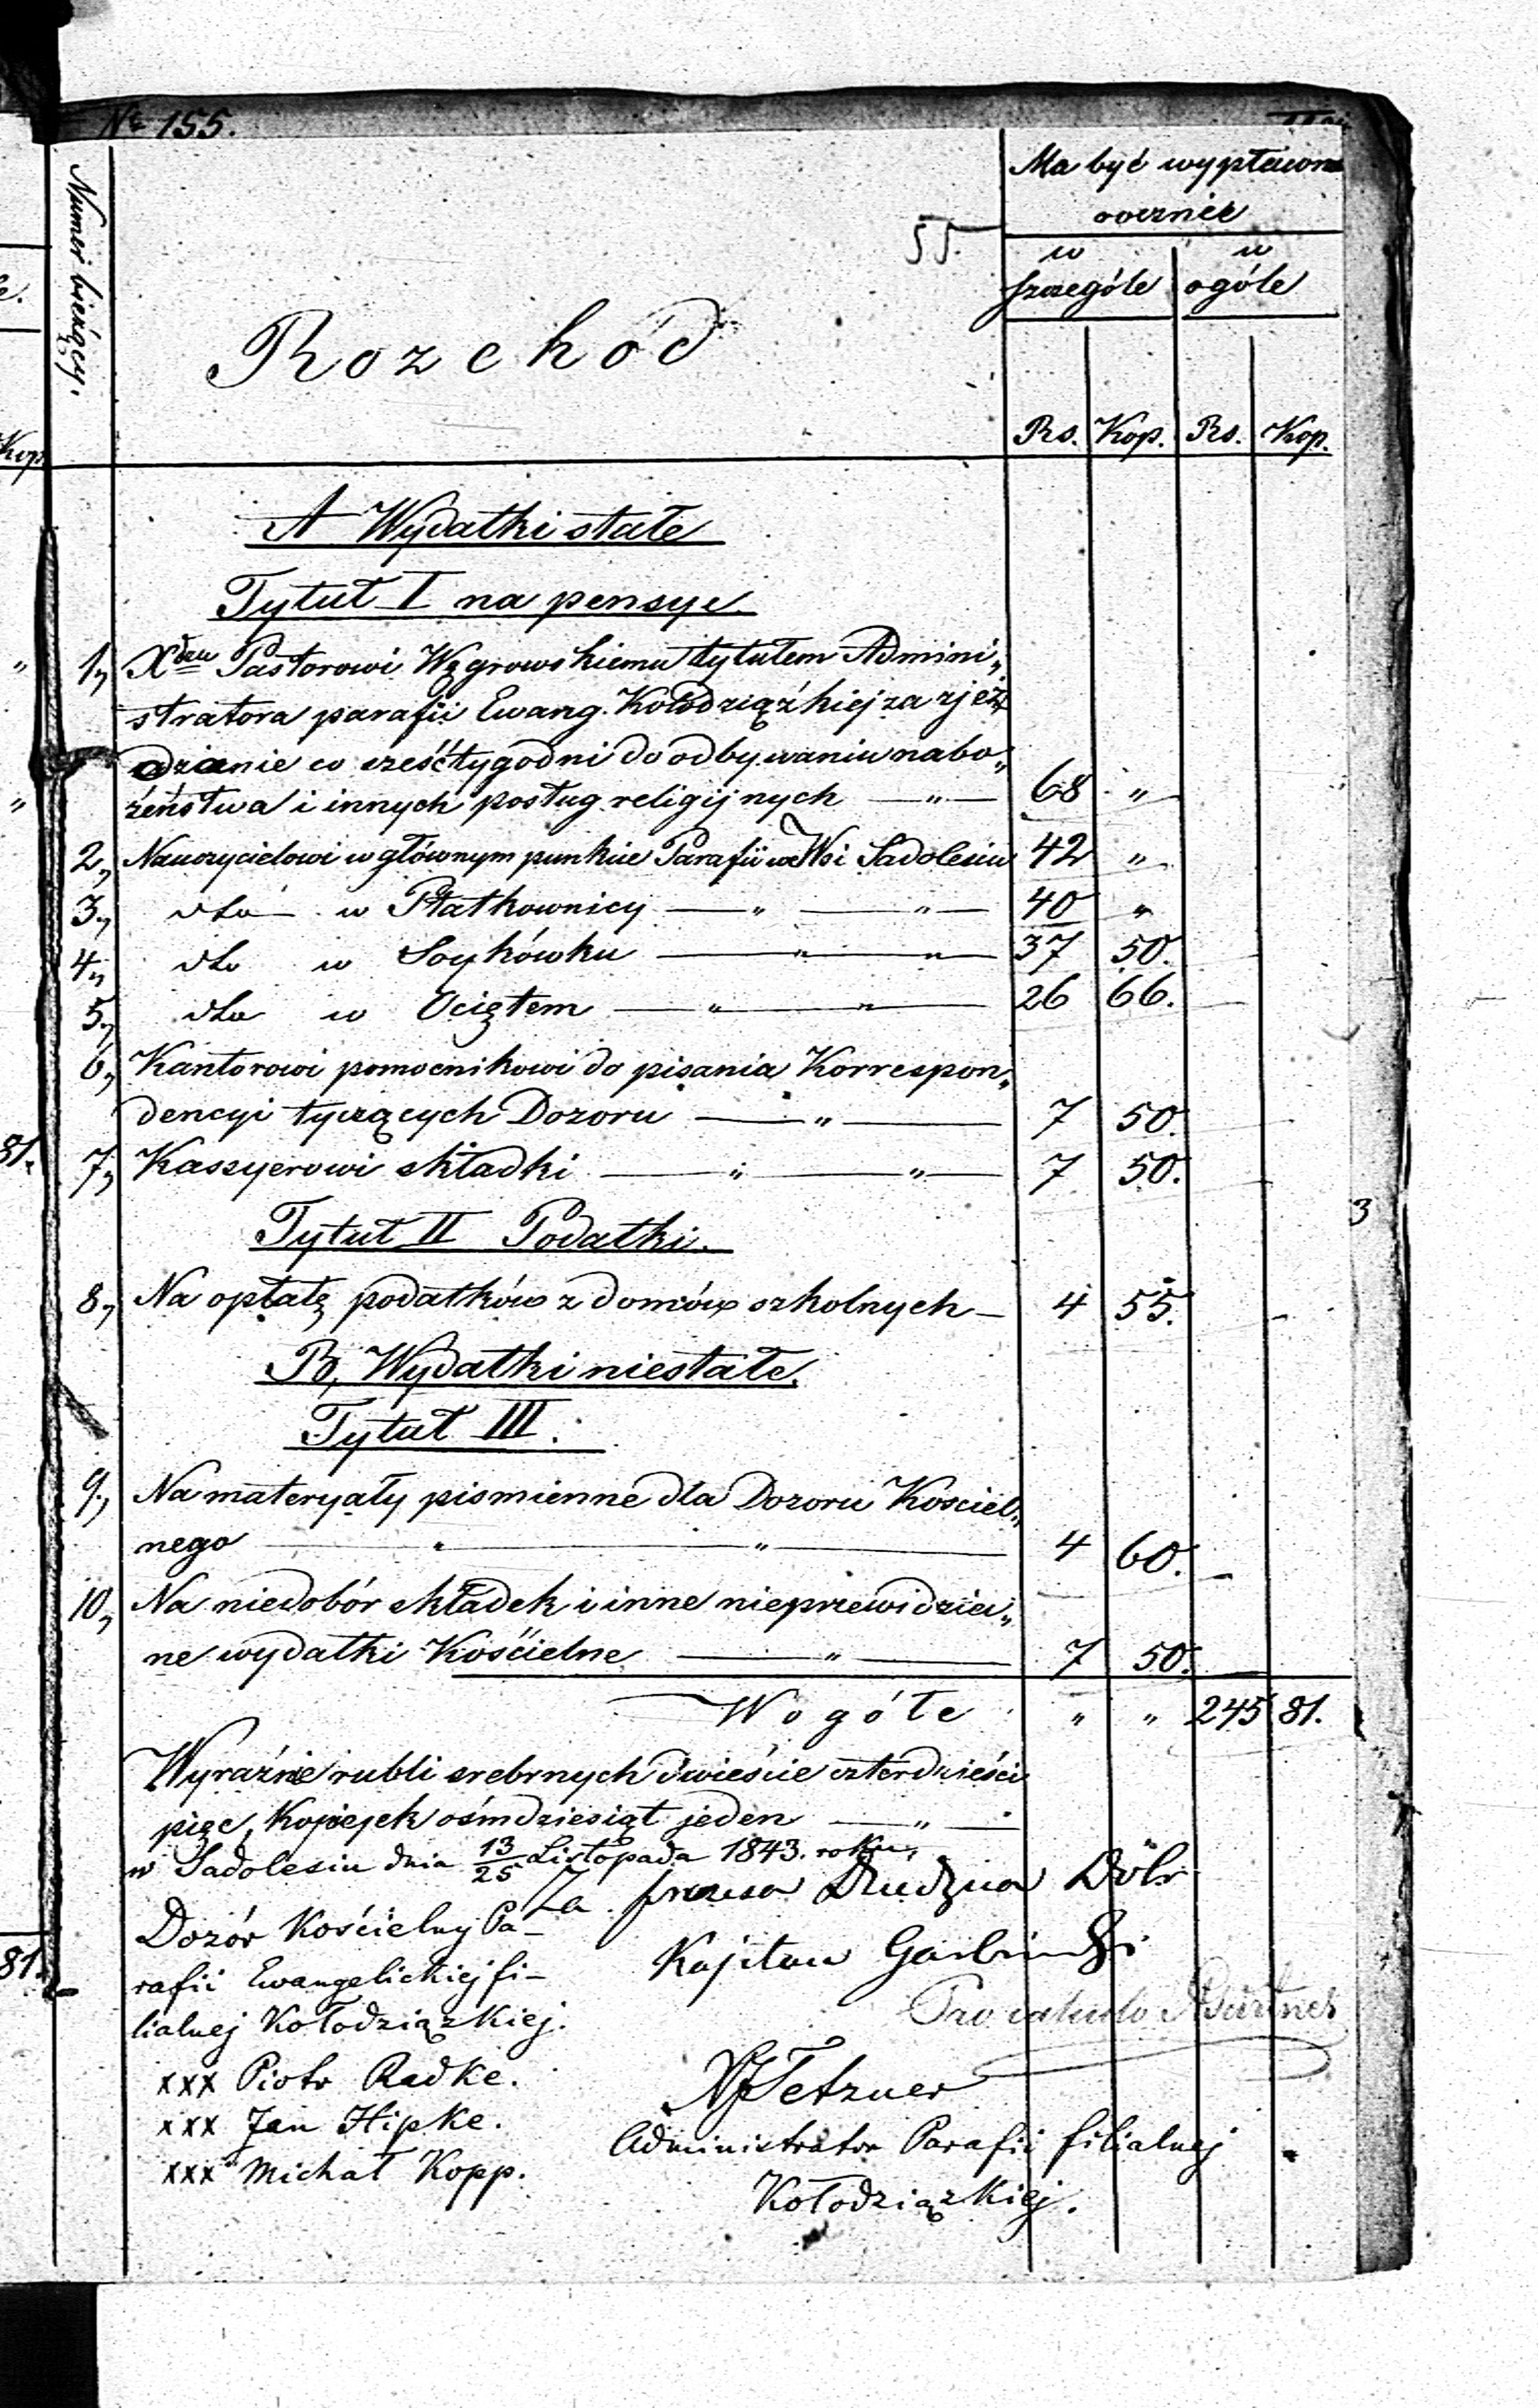 № 155.
Numer bieżący.
55.
Ma być wypłacone
rocznie
w szczególe
w ogóle
Rozchód
Rs. Kop. Rs. Kop.
Kop
A Wydatki stałe
Tytuł I na pensye
1, Xdzu Pastorowi Węgrowskiemu tytułem Admini„
stratora parafii Ewang. Kołodziąźkiej za zjeż„
dżanie co sześć tygodni do odbywaniu nabo„
żeństwa i innych posług religijnych — „ — 68 „
2, Nauczycielowi w głównym punkcie Parafii we Wsi Sadolesiu 42 „
3, dto w Płatkownicy — „ — „ — 40 „
4, dto w Soykówku — „ — „ — 37 50.
5, dto w Ociętem — „ — „ — 26 66.
6, Kantorowi pomocnikowi do pisania Korrespon„
dencyi tyczących Dozoru — „ — 7 50.
81.
7, Kassyerowi składki — „ — „ — 7 50.
3
Tytuł II Podatki.
8, Na opłatę podatków z domów szkolnych — 4 55.
B, Wydatki niestałe.
Tytuł III.
9, Na materyały pismienne dla Dozoru Kosciel„
nego — „ — „ — 4 60.
10, Na niedobór składek i inne nieprzewidzia„
ne wydatki Kościelne — „ — 7 50.
Wogóle „ „ 245 81.
Wyraźnie rubli srebrnych dwieście czterdzieści
pięc, Kopiejek ośmdziesiąt jeden — „ —
w Sadolesiu dnia 13/25 Listopada 1843. roku,
Za prezesa Dziedzica Döhr
Dozór Kościelny Pa-
rafii Ewangelickiej fi-
lialnej Kołodziązkiej.
Kajetan Garbiński
81.
Pro calculo
xxx Piotr Radke.
xxx Jan Hipke.
xxx Michał Kopp.
Tetzner
Administrator Parafii filialnej
Kołodziązkiej.